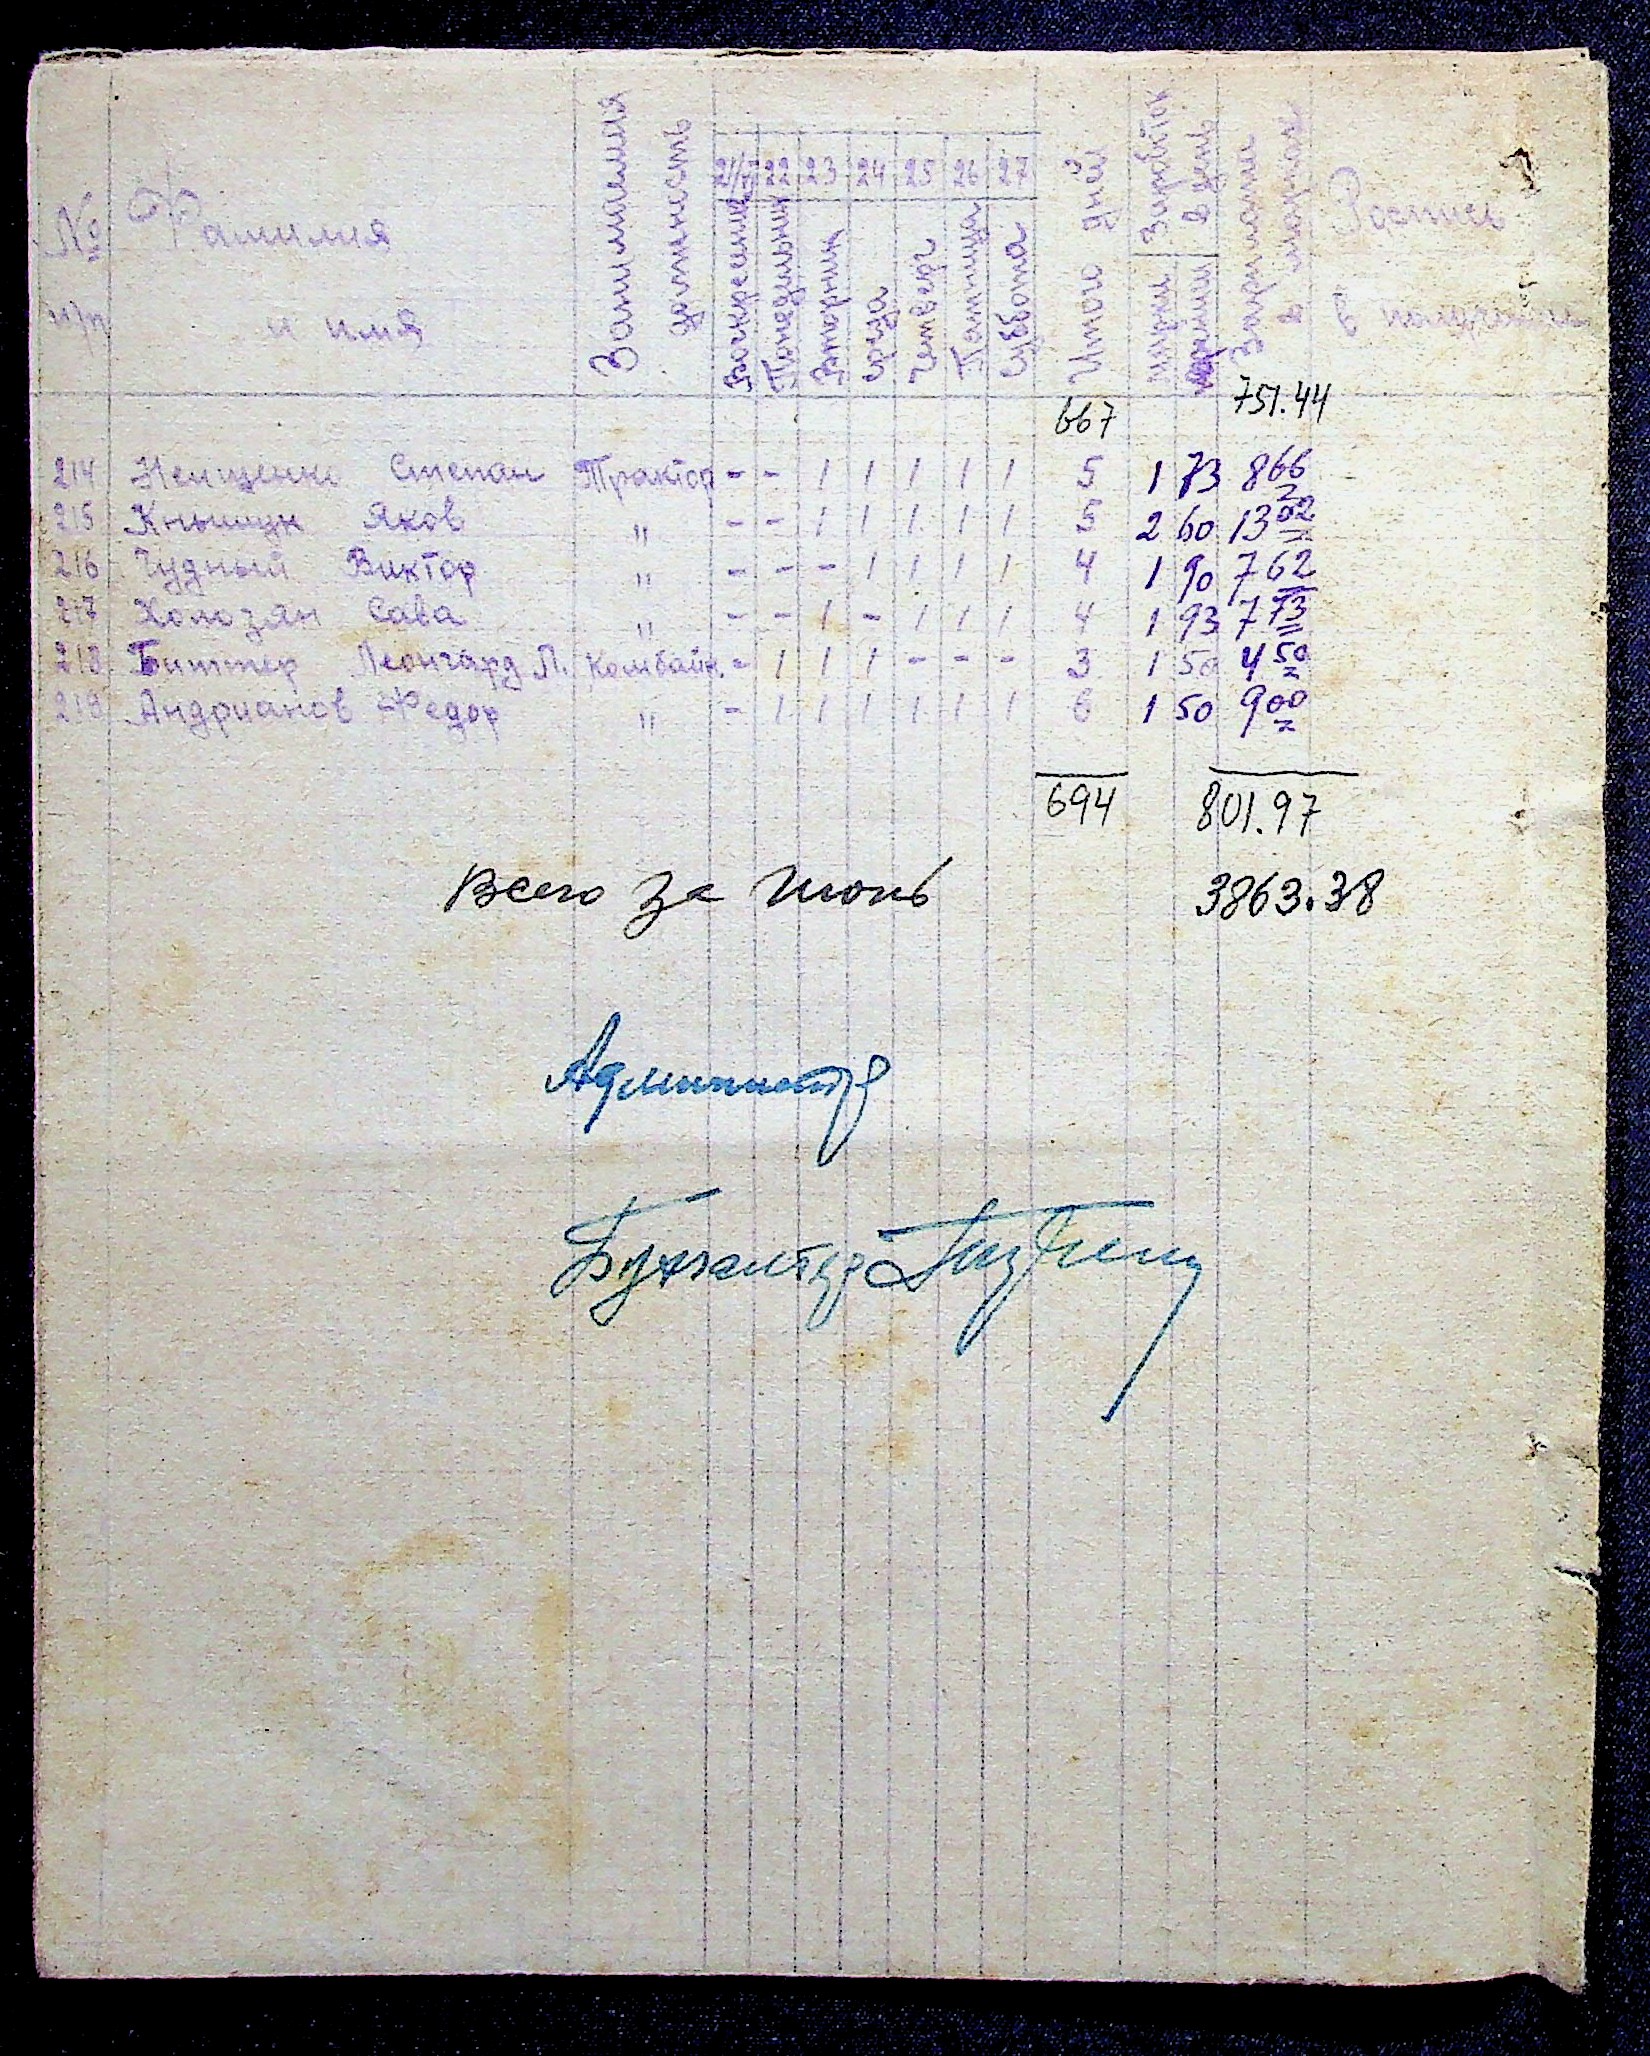 № п/п Фамилия и имя Занимаемая должность 21/VI 22 23 24 25 26 27 Итого дней Заработок в день Зарплата в марках Роспись в получении
Воскресение Понедельник Вторник Среда Четверг Пятница Суббота марки
667 751.44
214 Степан Трактор - - 1 1 1 1 1 5 1 73 8 66
215 Яков " - - 1 1 1 1 1 5 2 60 13 02
216 Чудный Виктор " - - - 1 1 1 1 4 1 90 7 62
217 Холозян Сава " - - 1 - 1 1 1 4 1 93 7 73
218 Биттер Леонгард П. Комбайн. - 1 1 1 - - - 3 1 50 4 50
219 Андрианов Федор " - 1 1 1 1 1 1 6 1 50 9 00
694 801.97
Всего за июнь 3863.38
Администр
Бухгалтер